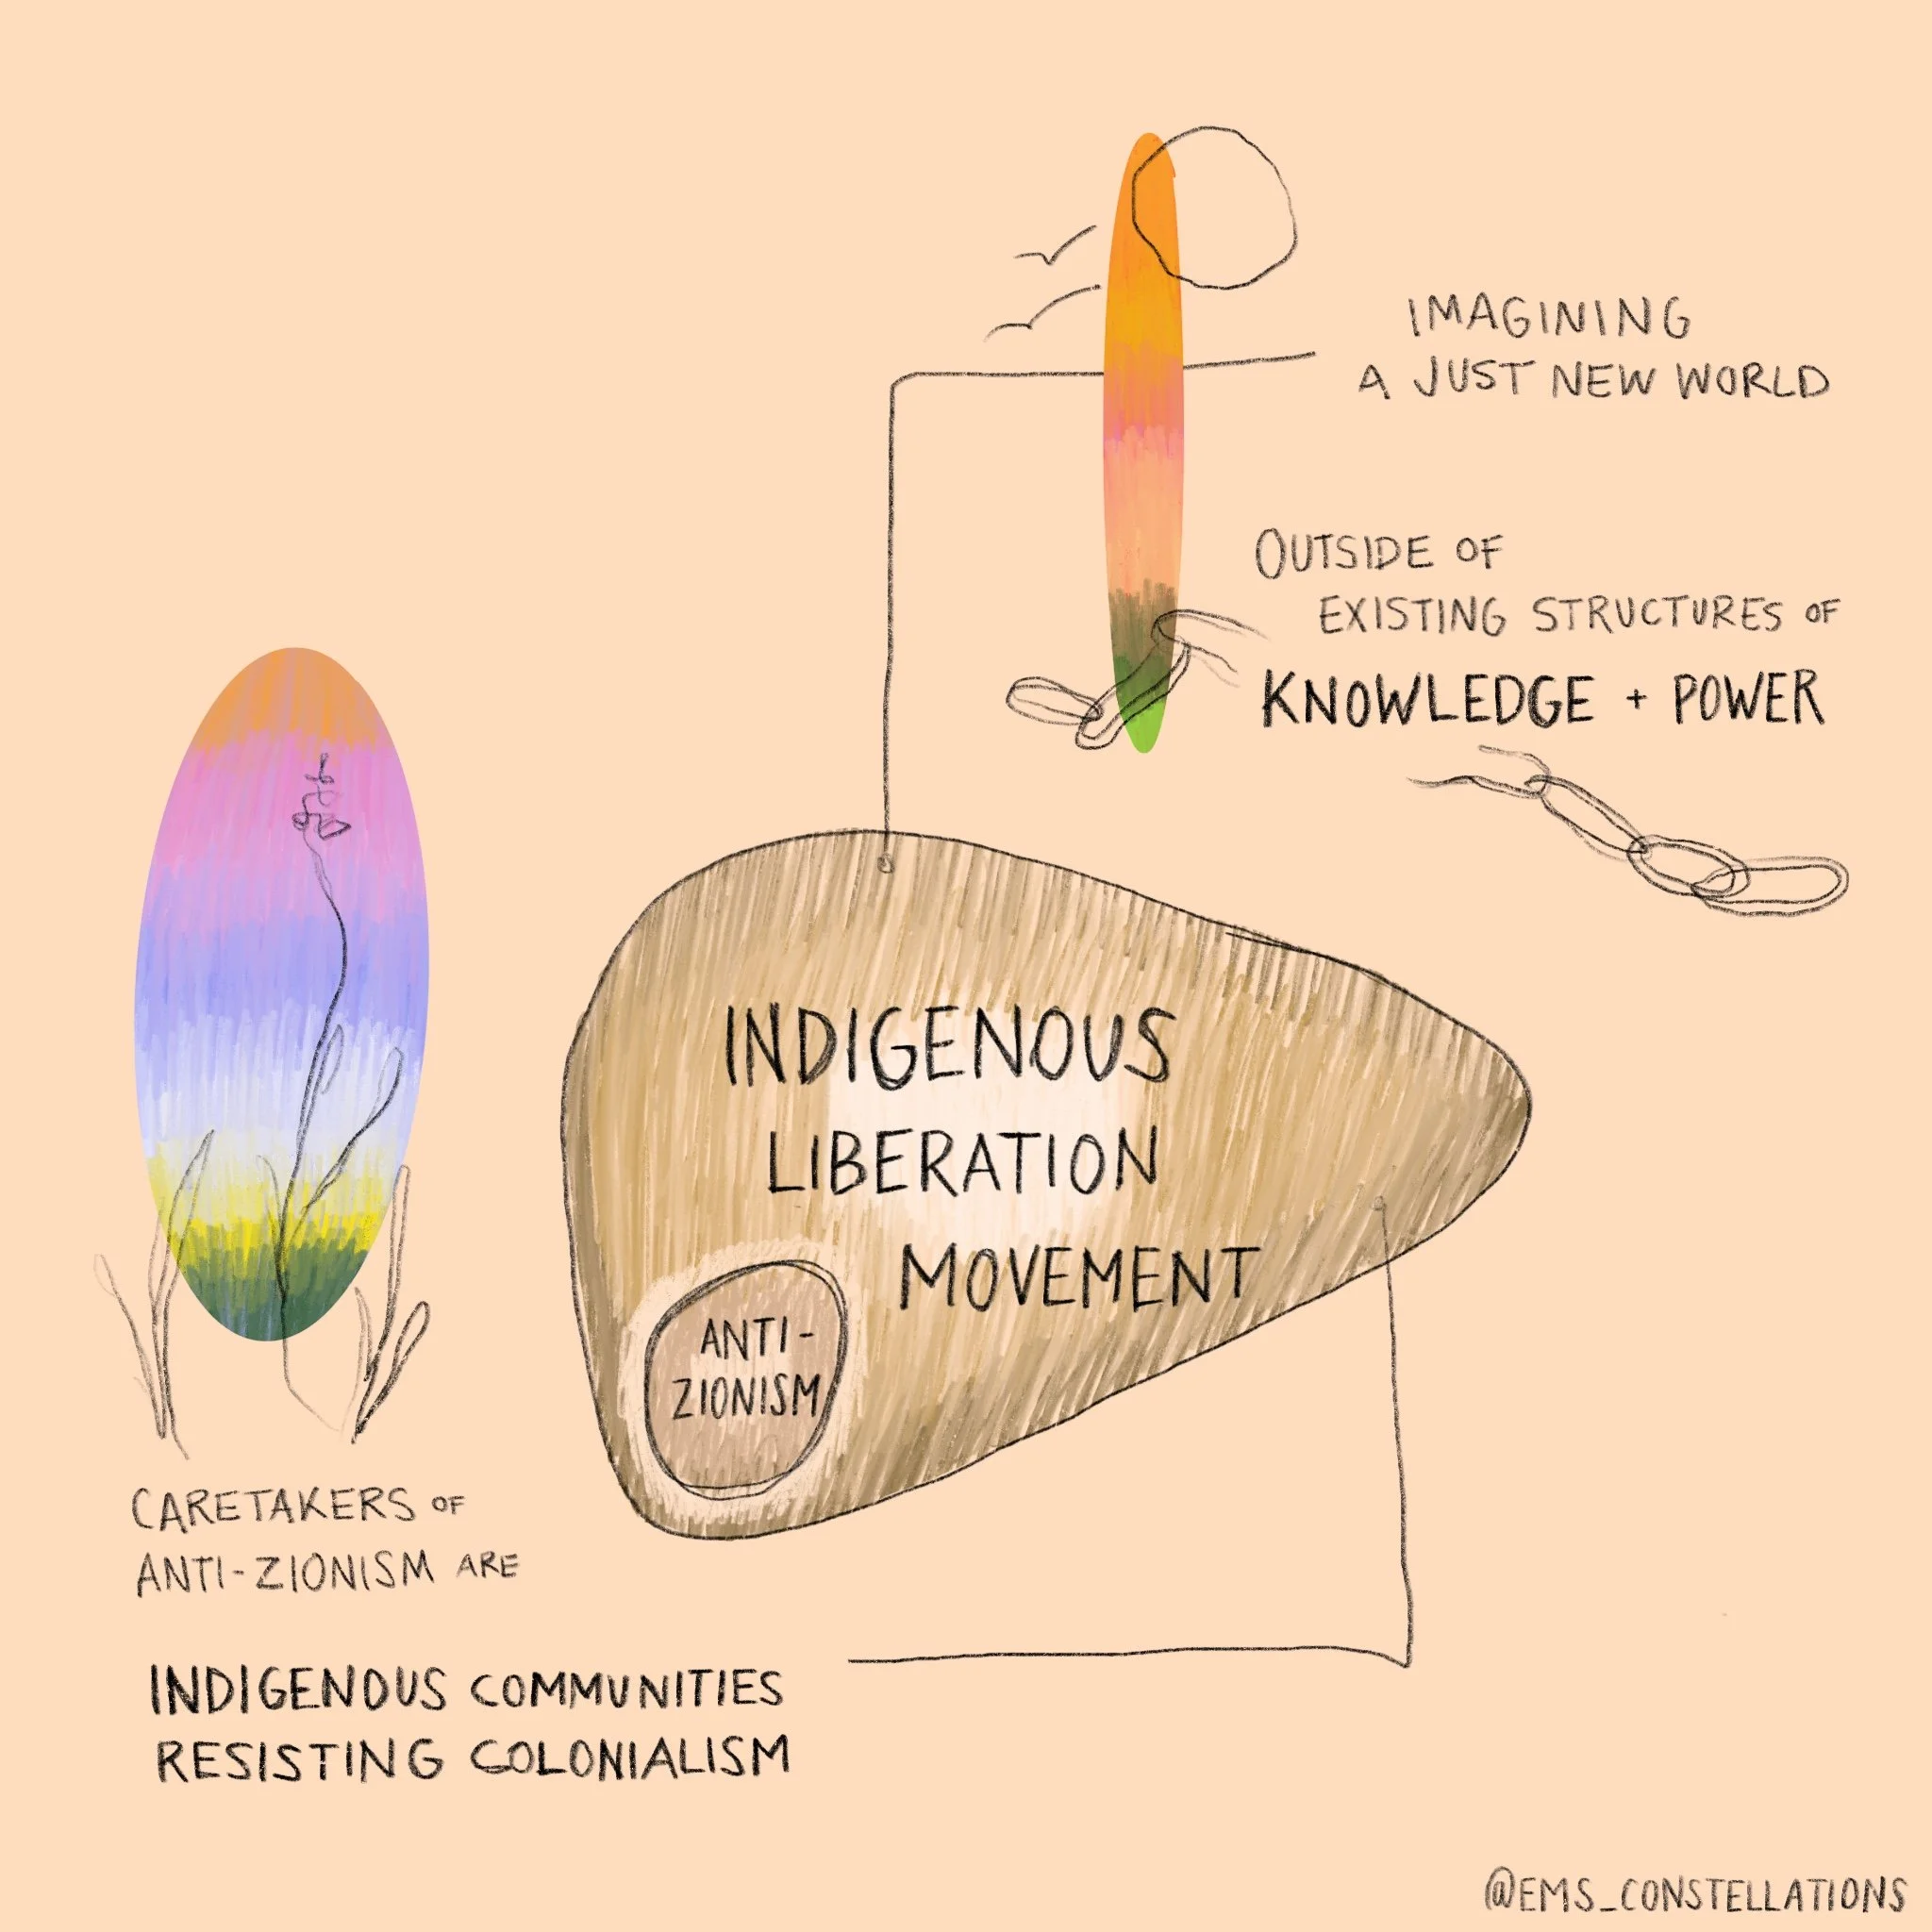 IMAGINING
A JUST NEW WORLD
OUTSIDE OF
EXISTING STRUCTURES OF
KNOWLEDGE + POWER
INDIGENOUS
LIBERATION
MOVEMENT
ANTI-
ZIONISM
CARETAKERS OF
ANTI-ZIONISM ARE
INDIGENOUS COMMUNITIES
RESISTING COLONIALISM
@EMS_CONSTELLATIONS